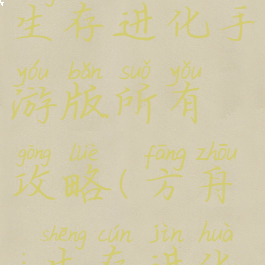 生存进化手
yóu bǎn suǒ yǒu
游版所有
gōng lüè fāng zhōu
攻略(方舟
shēng cún jìn huà
生存进化